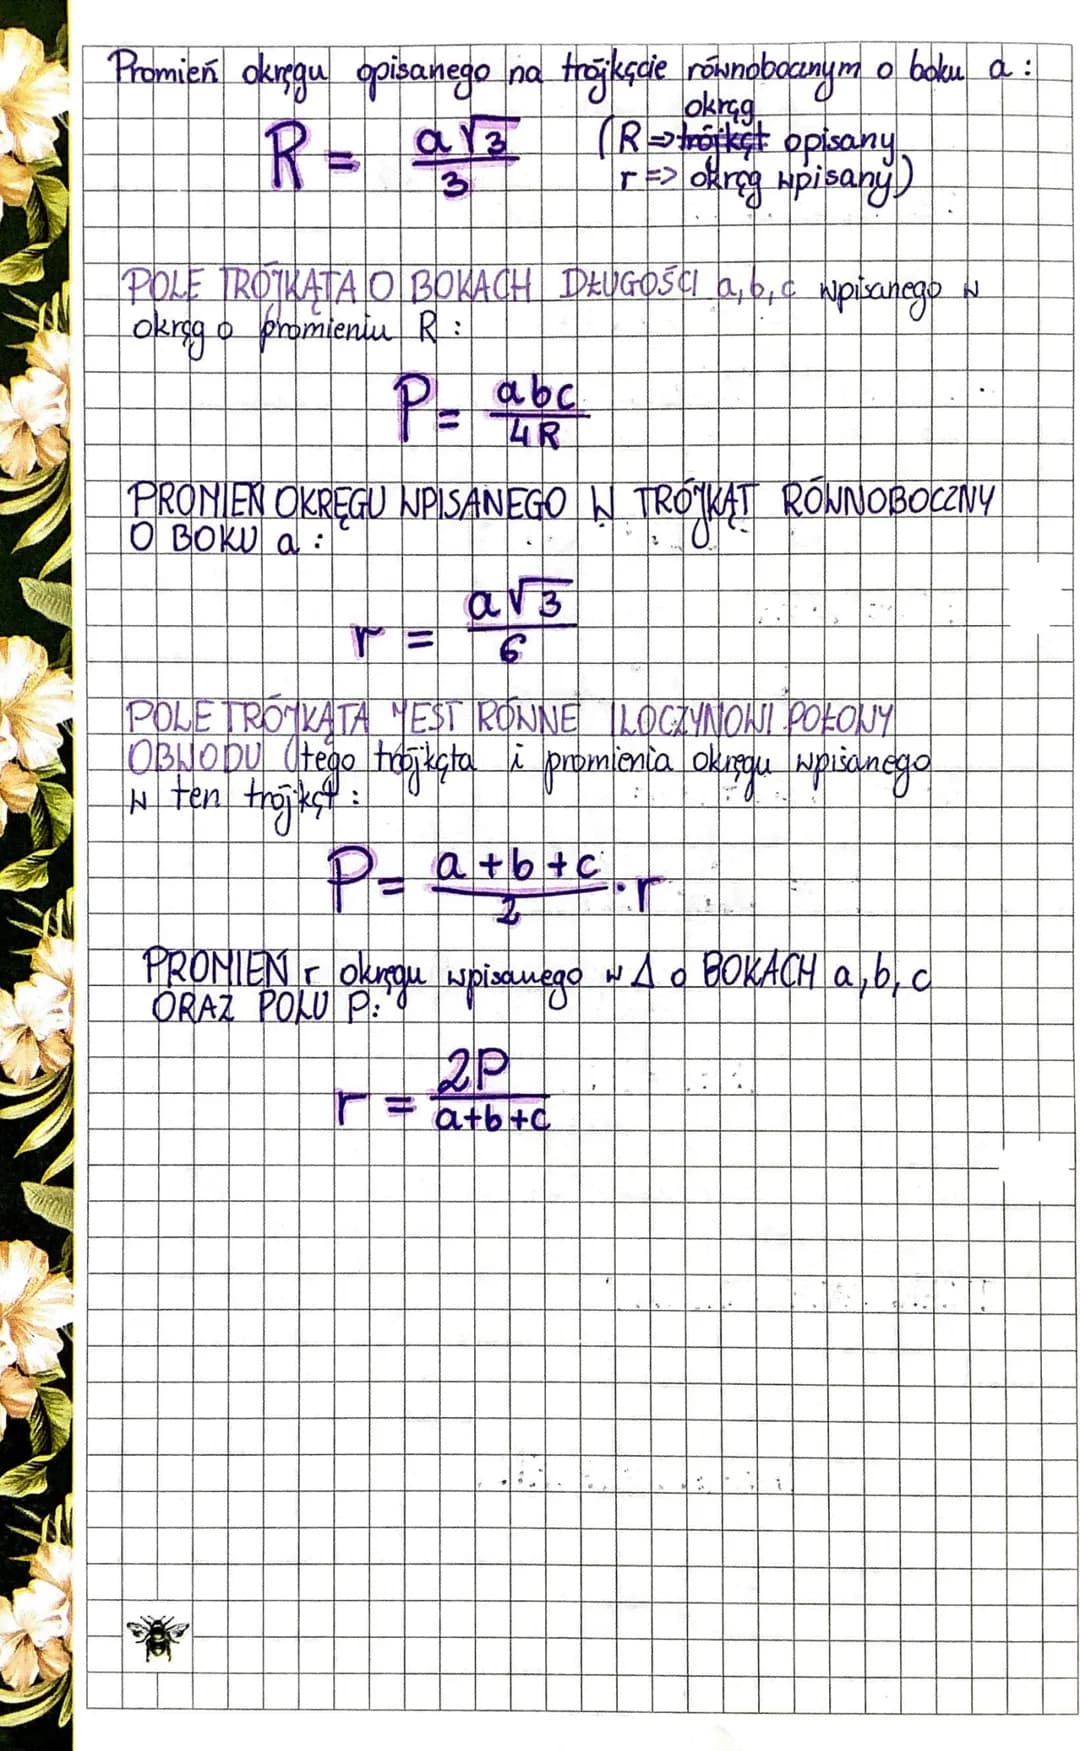 Promień okręgu opisanego na trójkącie równobocznym o boku a :
okrąg
R = a√3/3 (R => trójkąt opisany
r => okręg wpisany)
POLE TRÓJKĄTA O BOKACH DŁUGOŚCI a, b, c wpisanego w
okrąg o promieniu R :
P = abc/4R
PROMIEŃ OKRĘGU WPISANEGO W TRÓJKĄT RÓWNOBOCZNY
O BOKU a :
r = a√3/6
POLE TRÓJKĄTA JEST RÓWNE ILOCZYNOWI POŁOWY
OBWODU tego trójkąta i promienia okręgu wpisanego
w ten trójkąt :
P = a+b+c/2 · r
PROMIEŃ r okręgu wpisanego w Δ o BOKACH a, b, c
ORAZ POLU P:
r = 2P/a+b+c